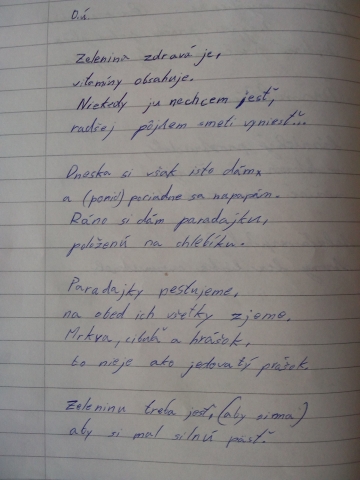 D.ú.
Zelenina zdravá je,
vitamíny obsahuje.
Niekedy ju nechcem jesť,
radšej pôjdem smeti vyniesť...
Dneska si však isto dám,
a (poniž) poriadne sa napapám.
Ráno si dám paradajku,
položenú na chlebíku.
Paradajky pestujeme,
na obed ich všetky zjeme.
Mrkva, cibuľa a hrášok,
to nieje ako jedovatý prášok.
Zeleninu treba jesť, (aby si ma)
aby si mal silnú päsť.